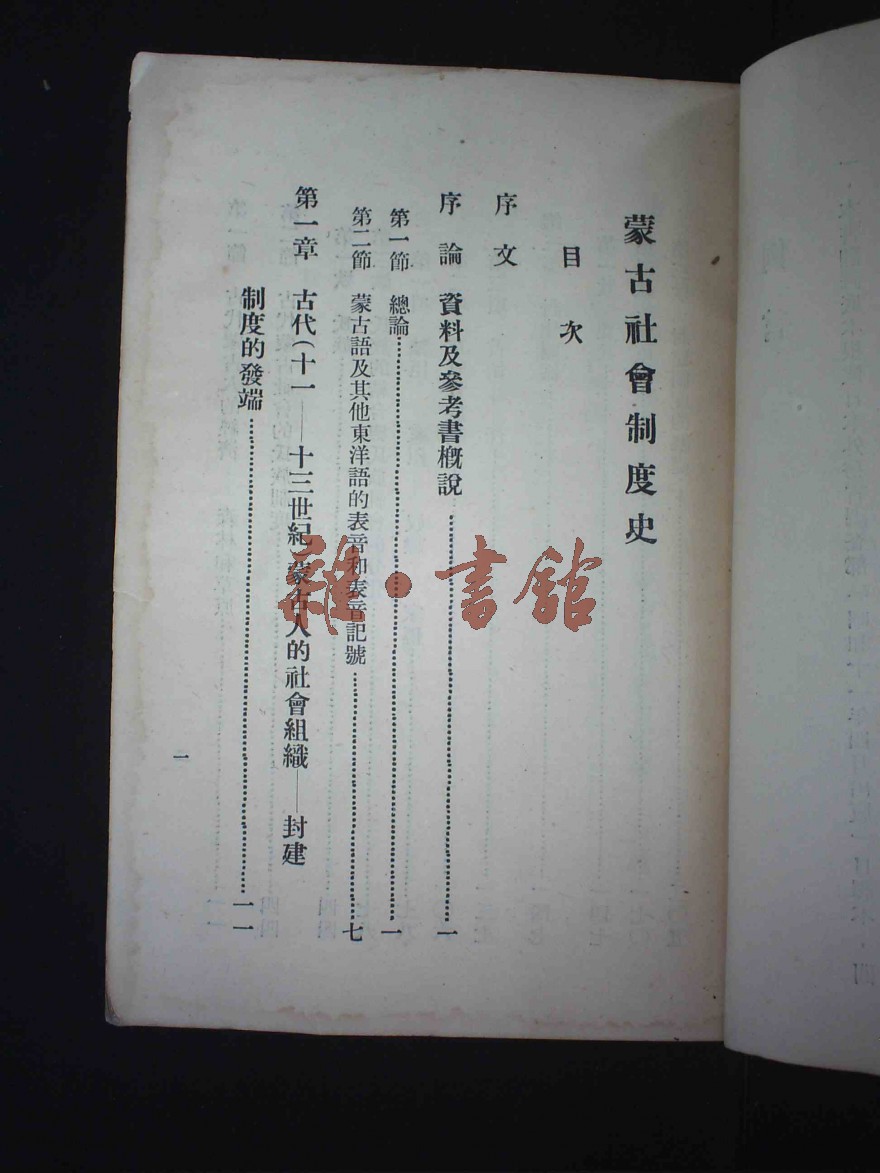 蒙古社會制度史
目次
序文
序論 資料及參考書概說……一
第一節 總論……一
第二節 蒙古語及其他東洋語的表音和表音記號……七
第一章 古代(十一——十三世紀)蒙古人的社會組織——封建
制度的發端……一一
一
雜·書館